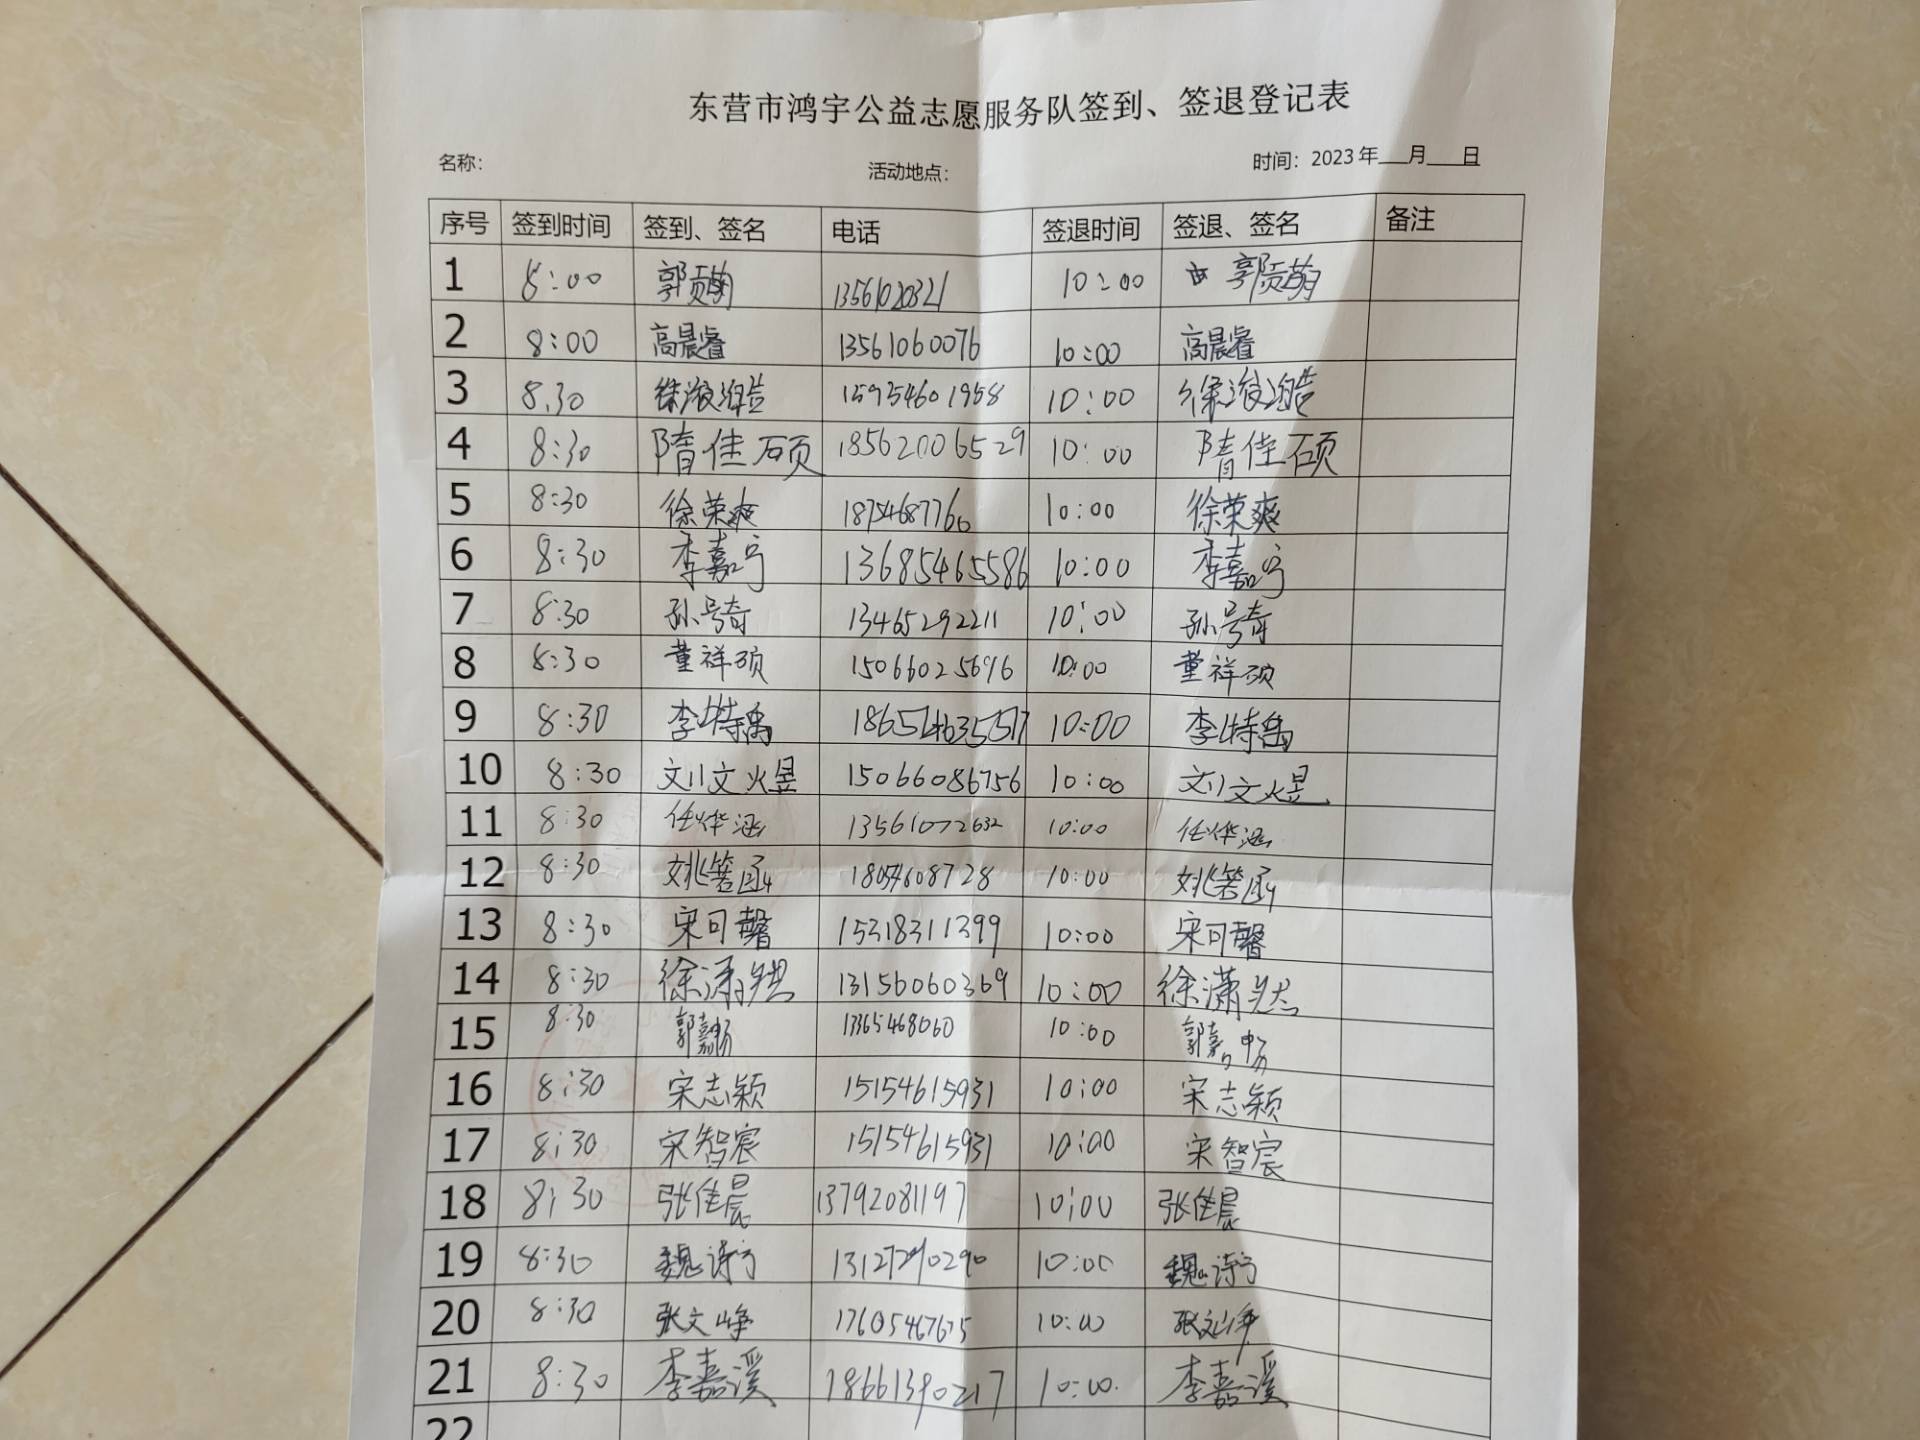 东营市鸿宇公益志愿服务队签到、签退登记表
名称： 活动地点： 时间：2023年___月___日
序号 签到时间 签到、签名 电话 签退时间 签退、签名 备注
1 8:00 郭贡萌 10:00 郭贡萌
2 8:00 高晨睿 13561060076 10:00 高晨睿
3 8.30 徐 15954601958 10:00 徐
4 8:30 隋佳硕 18562006529 10:00 隋佳硕
5 8:30 徐荣爽 18754687760 10:00 徐荣爽
6 8:30 李嘉宁 13685465586 10:00 李嘉宁
7 8:30 孙号奇 13465292211 10:00 孙号奇
8 8:30 董祥硕 15066025696 10:00 董祥硕
9 8:30 李特禹 18654635517 10:00 李特禹
10 8:30 刘文焜 15066086756 10:00 刘文焜
11 8:30 任烨涵 13561072632 10:00 任烨涵
12 8:30 姚箬函 18054608728 10:00 姚箬函
13 8:30 宋可馨 15318311399 10:00 宋可馨
14 8:30 徐潇然 13156060369 10:00 徐潇然
15 8:30 郭嘉畅 13365468060 10:00 郭嘉畅
16 8:30 宋志颖 15154615931 10:00 宋志颖
17 8:30 宋智宸 15154615931 10:00 宋智宸
18 8:30 张佳晨 13792081197 10:00 张佳晨
19 8:30 魏诗宁 13127290290 10:00 魏诗宁
20 8:30 张文峥 17605467675 10:00 张文峥
21 8:30 李嘉溪 18661390217 10:00 李嘉溪
22